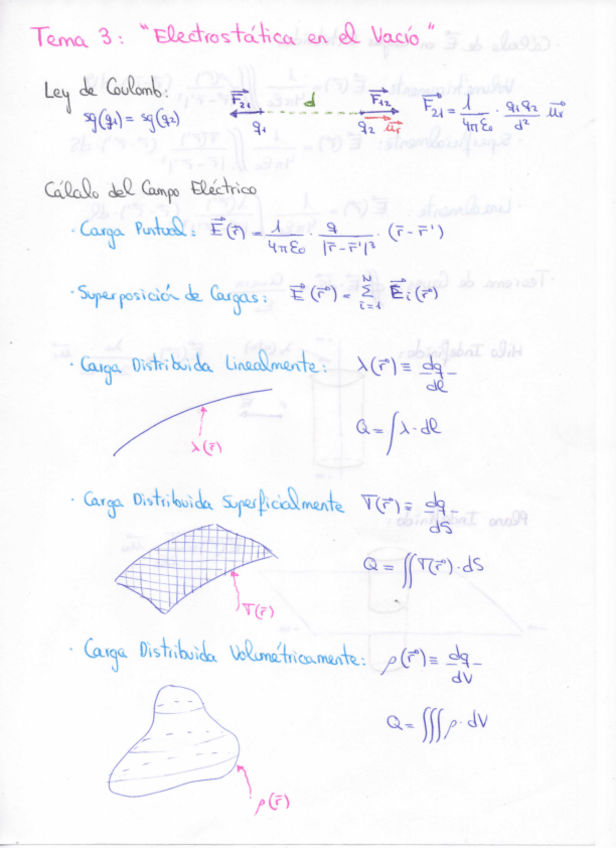 Tema 3: "Electrostática en el Vacío"
Ley de Coulomb:
sg(q₁) = sg(q₂)
F⃗₂₁ d F⃗₁₂
q₁ q₂ u⃗r
F⃗₂₁ = 1/(4πε₀) · q₁q₂/d² u⃗r
Cálculo del Campo Eléctrico
· Carga Puntual: E⃗(r⃗) = 1/(4πε₀) · q/|r̄-r̄'|³ · (r̄-r̄')
· Superposición de Cargas: E⃗(r⃗) = Σ_{i=1}^{N} E⃗i(r⃗)
· Carga Distribuida Linealmente: λ(r⃗) ≡ dq/dl
Q = ∫ λ·dl
λ(r̄)
· Carga Distribuida Superficialmente σ(r⃗) ≡ dq/dS
Q = ∬ σ(r⃗)·dS
σ(r̄)
· Carga Distribuida Volumétricamente: ρ(r⃗) ≡ dq/dV
Q = ∭ ρ·dV
ρ(r̄)